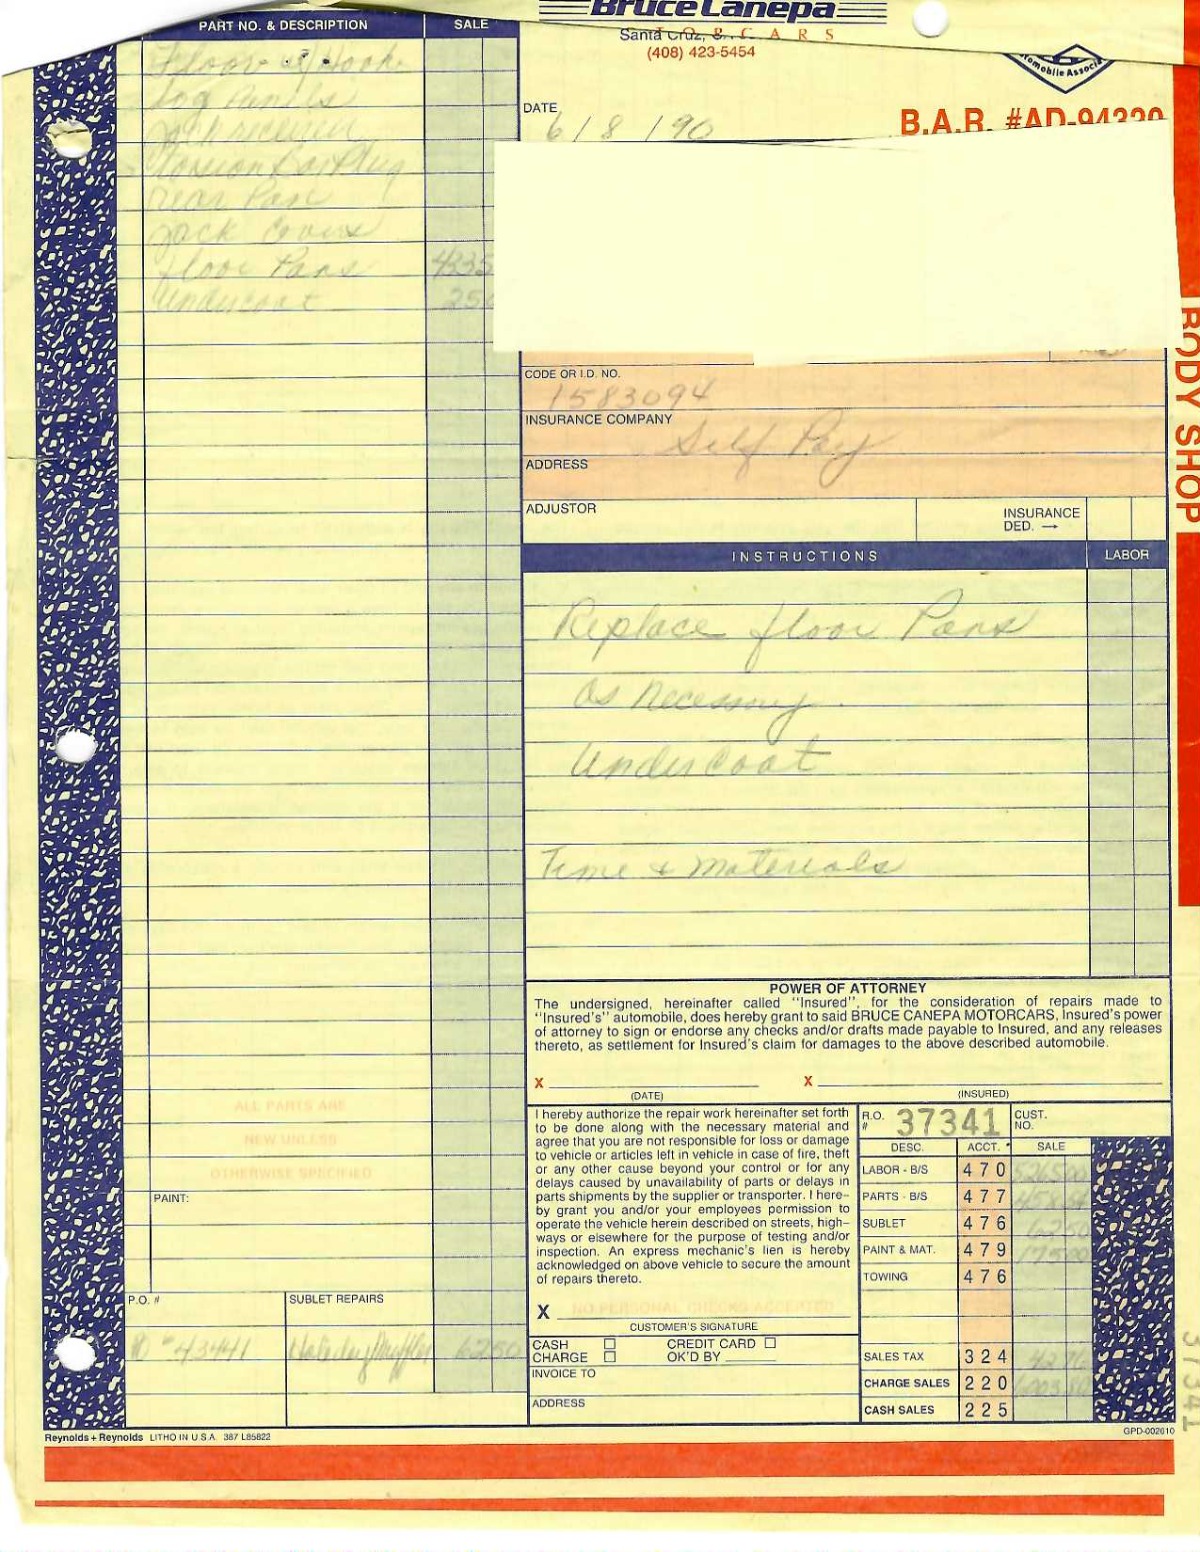 Bruce Canepa
MOTORCARS
Santa Cruz,
(408) 423-5454
Automobile Associ
PART NO. & DESCRIPTION SALE
Floor
Panels
Torsion Bar Plug
Rear Pan
Jack Covers
Floor Pans 4335
Undercoat 250
DATE
6/8/90
B.A.R. #AD-94320
BODY SHOP
CODE OR I.D. NO.
1583094
INSURANCE COMPANY
Self Pay
ADDRESS
ADJUSTOR INSURANCE
DED. →
INSTRUCTIONS LABOR
Replace floor Pans
as necessary
Undercoat
Time & materials
POWER OF ATTORNEY
The undersigned, hereinafter called "Insured", for the consideration of repairs made to
"Insured's" automobile, does hereby grant to said BRUCE CANEPA MOTORCARS, Insured's power
of attorney to sign or endorse any checks and/or drafts made payable to Insured, and any releases
thereto, as settlement for Insured's claim for damages to the above described automobile.
X X
(DATE) (INSURED)
ALL PARTS ARE
NEW UNLESS
OTHERWISE SPECIFIED
PAINT:
P.O. # SUBLET REPAIRS
43441 Holiday Muffler 6250
I hereby authorize the repair work hereinafter set forth
to be done along with the necessary material and
agree that you are not responsible for loss or damage
to vehicle or articles left in vehicle in case of fire, theft
or any other cause beyond your control or for any
delays caused by unavailability of parts or delays in
parts shipments by the supplier or transporter. I here-
by grant you and/or your employees permission to
operate the vehicle herein described on streets, high-
ways or elsewhere for the purpose of testing and/or
inspection. An express mechanic's lien is hereby
acknowledged on above vehicle to secure the amount
of repairs thereto.
X NO PERSONAL CHECKS ACCEPTED
CUSTOMER'S SIGNATURE
CASH CREDIT CARD
CHARGE OK'D BY
INVOICE TO
ADDRESS
R.O. # 37341 CUST. NO.
DESC. ACCT. SALE
LABOR - B/S 470 526500
PARTS - B/S 477
SUBLET 476 6250
PAINT & MAT. 479 17500
TOWING 476
SALES TAX 324
CHARGE SALES 220
CASH SALES 225
37341
Reynolds + Reynolds LITHO IN U.S.A. 387 L85822
GPD-002010